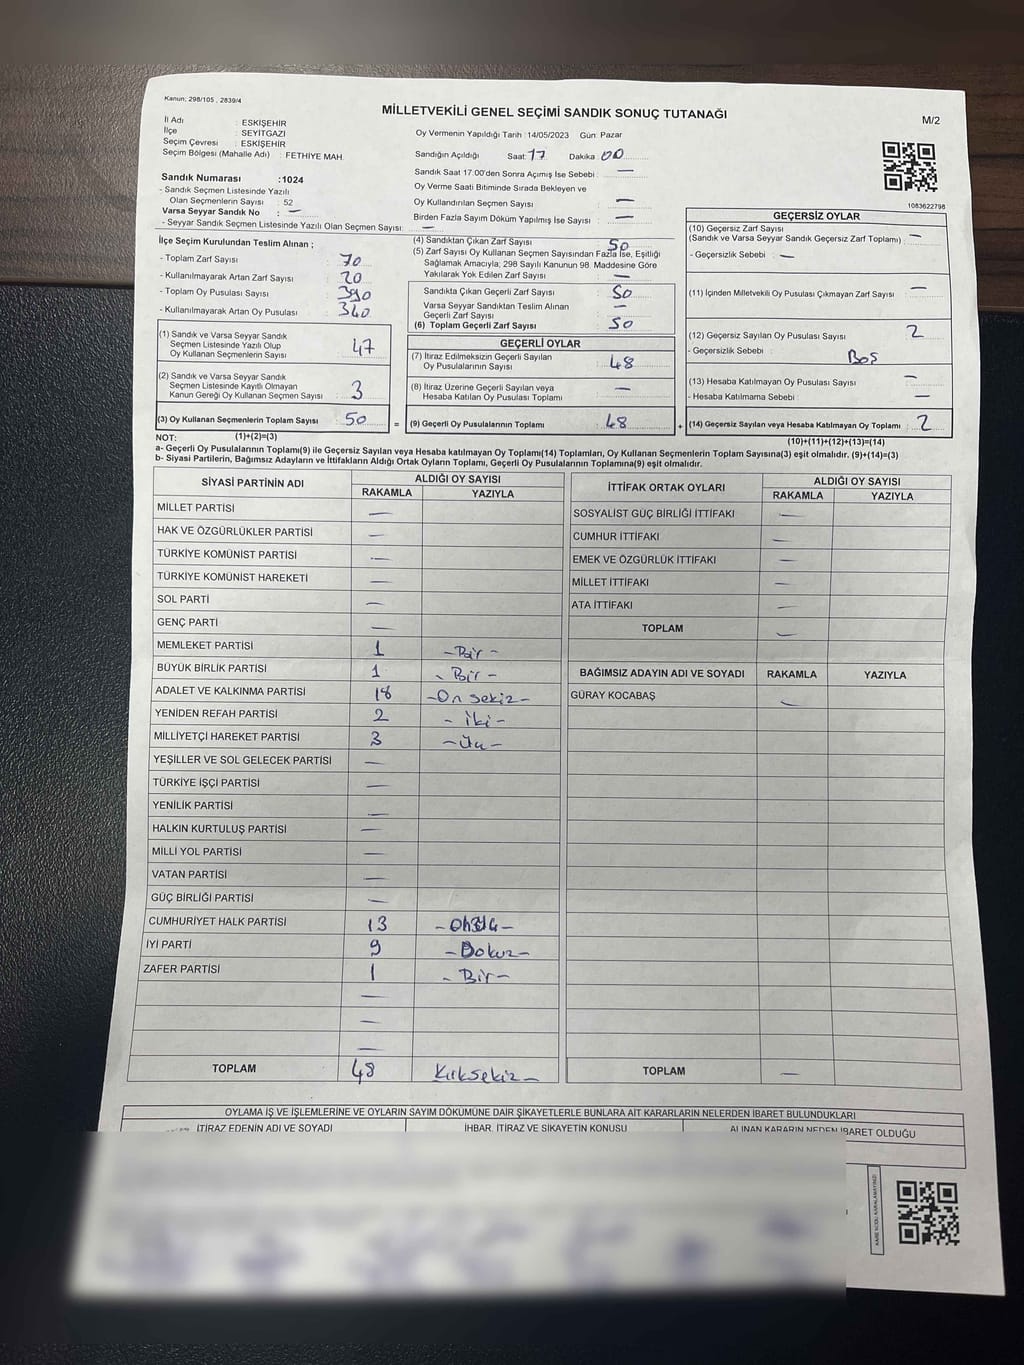 Kanun; 298/105 , 2839/4
MİLLETVEKİLİ GENEL SEÇİMİ SANDIK SONUÇ TUTANAĞI
M/2
İl Adı : ESKİŞEHİR
İlçe : SEYİTGAZİ
Seçim Çevresi : ESKİŞEHİR
Seçim Bölgesi (Mahalle Adı) : FETHİYE MAH.
Oy Vermenin Yapıldığı Tarih : 14/05/2023 Gün: Pazar
Sandığın Açıldığı Saat: 17 Dakika: 00
Sandık Saat 17:00'den Sonra Açımış İse Sebebi : —
Oy Verme Saati Bitiminde Sırada Bekleyen ve
Oy Kullandırılan Seçmen Sayısı : —
Birden Fazla Sayım Döküm Yapılmış İse Sayısı : —
1083622798
Sandık Numarası :1024
- Sandık Seçmen Listesinde Yazılı
Olan Seçmenlerin Sayısı : 52
Varsa Seyyar Sandık No : —
- Seyyar Sandık Seçmen Listesinde Yazılı Olan Seçmen Sayısı: —
İlçe Seçim Kurulundan Teslim Alınan ;
- Toplam Zarf Sayısı : 70
- Kullanılmayarak Artan Zarf Sayısı : 20
- Toplam Oy Pusulası Sayısı : 390
- Kullanılmayarak Artan Oy Pusulası : 340
(1) Sandık ve Varsa Seyyar Sandık
Seçmen Listesinde Yazılı Olup
Oy Kullanan Seçmenlerin Sayısı : 47
(2) Sandık ve Varsa Seyyar Sandık
Seçmen Listesinde Kayıtlı Olmayan
Kanun Gereği Oy Kullanan Seçmen Sayısı : 3
(3) Oy Kullanan Seçmenlerin Toplam Sayısı : 50
(1)+(2)=(3)
(4) Sandıktan Çıkan Zarf Sayısı : 50
(5) Zarf Sayısı Oy Kullanan Seçmen Sayısından Fazla İse, Eşitliği
Sağlamak Amacıyla; 298 Sayılı Kanunun 98. Maddesine Göre
Yakılarak Yok Edilen Zarf Sayısı : —
Sandıkta Çıkan Geçerli Zarf Sayısı : 50
Varsa Seyyar Sandıktan Teslim Alınan
Geçerli Zarf Sayısı : —
(6) Toplam Geçerli Zarf Sayısı : 50
GEÇERLİ OYLAR
(7) İtiraz Edilmeksizin Geçerli Sayılan
Oy Pusulalarının Sayısı : 48
(8) İtiraz Üzerine Geçerli Sayılan veya
Hesaba Katılan Oy Pusulası Toplamı : —
= (9) Geçerli Oy Pusulalarının Toplamı : 48 +
GEÇERSİZ OYLAR
(10) Geçersiz Zarf Sayısı
(Sandık ve Varsa Seyyar Sandık Geçersiz Zarf Toplamı) : —
- Geçersizlik Sebebi : —
(11) İçinden Milletvekili Oy Pusulası Çıkmayan Zarf Sayısı : —
(12) Geçersiz Sayılan Oy Pusulası Sayısı : 2
- Geçersizlik Sebebi : Boş
(13) Hesaba Katılmayan Oy Pusulası Sayısı : —
- Hesaba Katılmama Sebebi : —
(14) Geçersiz Sayılan veya Hesaba Katılmayan Oy Toplamı : 2
(10)+(11)+(12)+(13)=(14)
NOT:
a- Geçerli Oy Pusulalarının Toplamı(9) ile Geçersiz Sayılan veya Hesaba katılmayan Oy Toplamı(14) Toplamları, Oy Kullanan Seçmenlerin Toplam Sayısına(3) eşit olmalıdır. (9)+(14)=(3)
b- Siyasi Partilerin, Bağımsız Adayların ve İttifakların Aldığı Ortak Oyların Toplamı, Geçerli Oy Pusulalarının Toplamına(9) eşit olmalıdır.
SİYASİ PARTİNİN ADI ALDIĞI OY SAYISI
RAKAMLA YAZIYLA
MİLLET PARTİSİ —
HAK VE ÖZGÜRLÜKLER PARTİSİ —
TÜRKİYE KOMÜNİST PARTİSİ —
TÜRKİYE KOMÜNİST HAREKETİ —
SOL PARTİ —
GENÇ PARTİ —
MEMLEKET PARTİSİ 1 -Bir-
BÜYÜK BİRLİK PARTİSİ 1 -Bir-
ADALET VE KALKINMA PARTİSİ 18 -On sekiz-
YENİDEN REFAH PARTİSİ 2 -İki-
MİLLİYETÇİ HAREKET PARTİSİ 3 -Üç-
YEŞİLLER VE SOL GELECEK PARTİSİ —
TÜRKİYE İŞÇİ PARTİSİ —
YENİLİK PARTİSİ —
HALKIN KURTULUŞ PARTİSİ —
MİLLİ YOL PARTİSİ —
VATAN PARTİSİ —
GÜÇ BİRLİĞİ PARTİSİ —
CUMHURİYET HALK PARTİSİ 13
İYİ PARTİ 9 -Dokuz-
ZAFER PARTİSİ 1 -Bir-
—
—
—
TOPLAM 48 Kırksekiz-
İTTİFAK ORTAK OYLARI ALDIĞI OY SAYISI
RAKAMLA YAZIYLA
SOSYALİST GÜÇ BİRLİĞİ İTTİFAKI —
CUMHUR İTTİFAKI —
EMEK VE ÖZGÜRLÜK İTTİFAKI —
MİLLET İTTİFAKI —
ATA İTTİFAKI —
TOPLAM —
BAĞIMSIZ ADAYIN ADI VE SOYADI RAKAMLA YAZIYLA
GÜRAY KOCABAŞ —
TOPLAM —
OYLAMA İŞ VE İŞLEMLERİNE VE OYLARIN SAYIM DÖKÜMÜNE DAİR ŞİKAYETLERLE BUNLARA AİT KARARLARIN NELERDEN İBARET BULUNDUKLARI
İTİRAZ EDENİN ADI VE SOYADI İHBAR, İTİRAZ VE ŞİKAYETİN KONUSU ALINAN KARARIN NEDEN İBARET OLDUĞU
KARE KODU KARALAMAYINIZ!